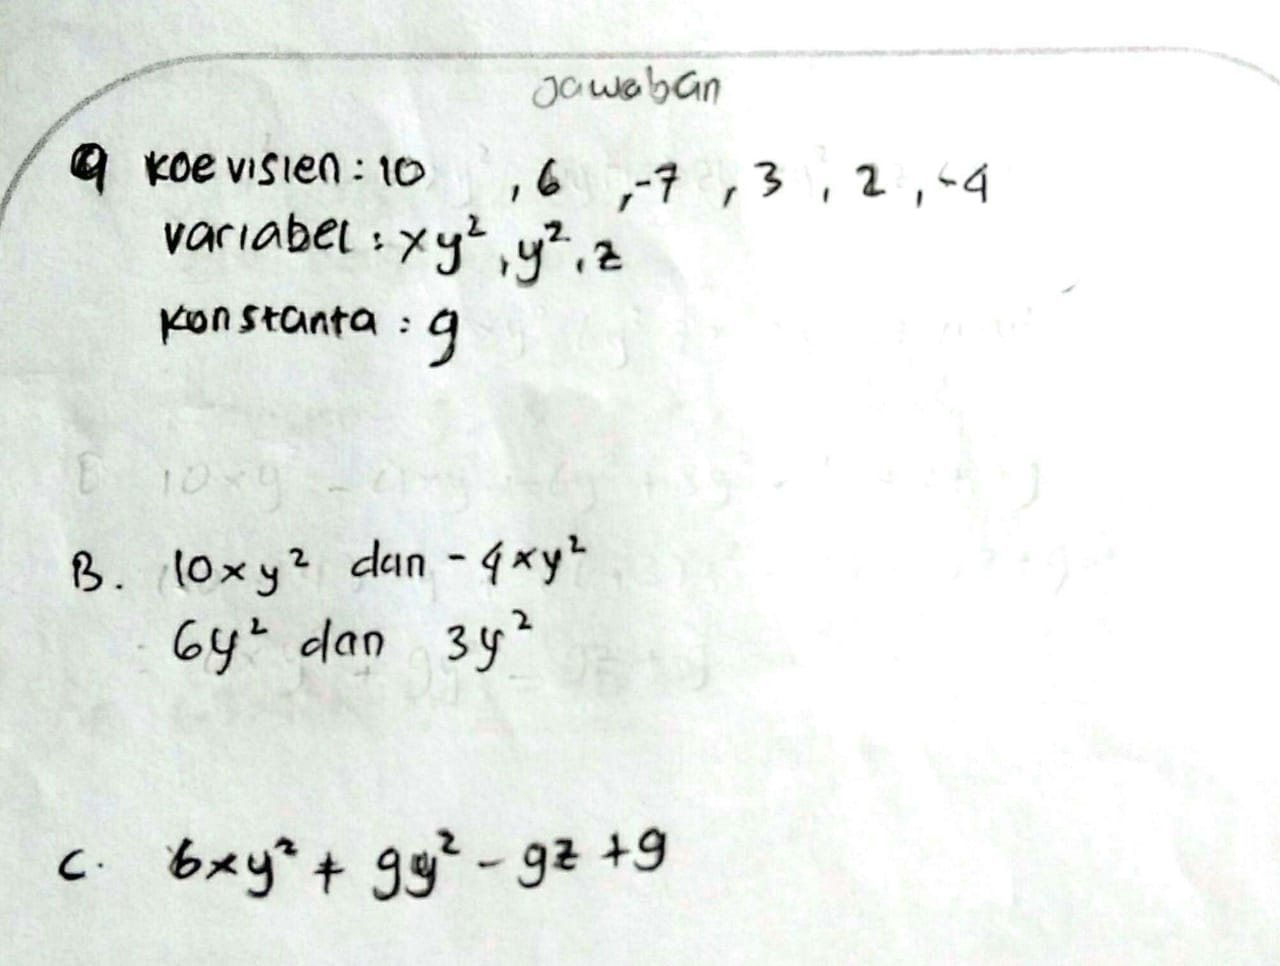 Jawaban
a koevisien : 10 , 6 , -7 , 3 , 2 , -4
variabel : xy² , y² , z
konstanta : 9
B. 10xy² dan -4xy²
6y² dan 3y²
C. 6xy² + 9y² - 9z + 9